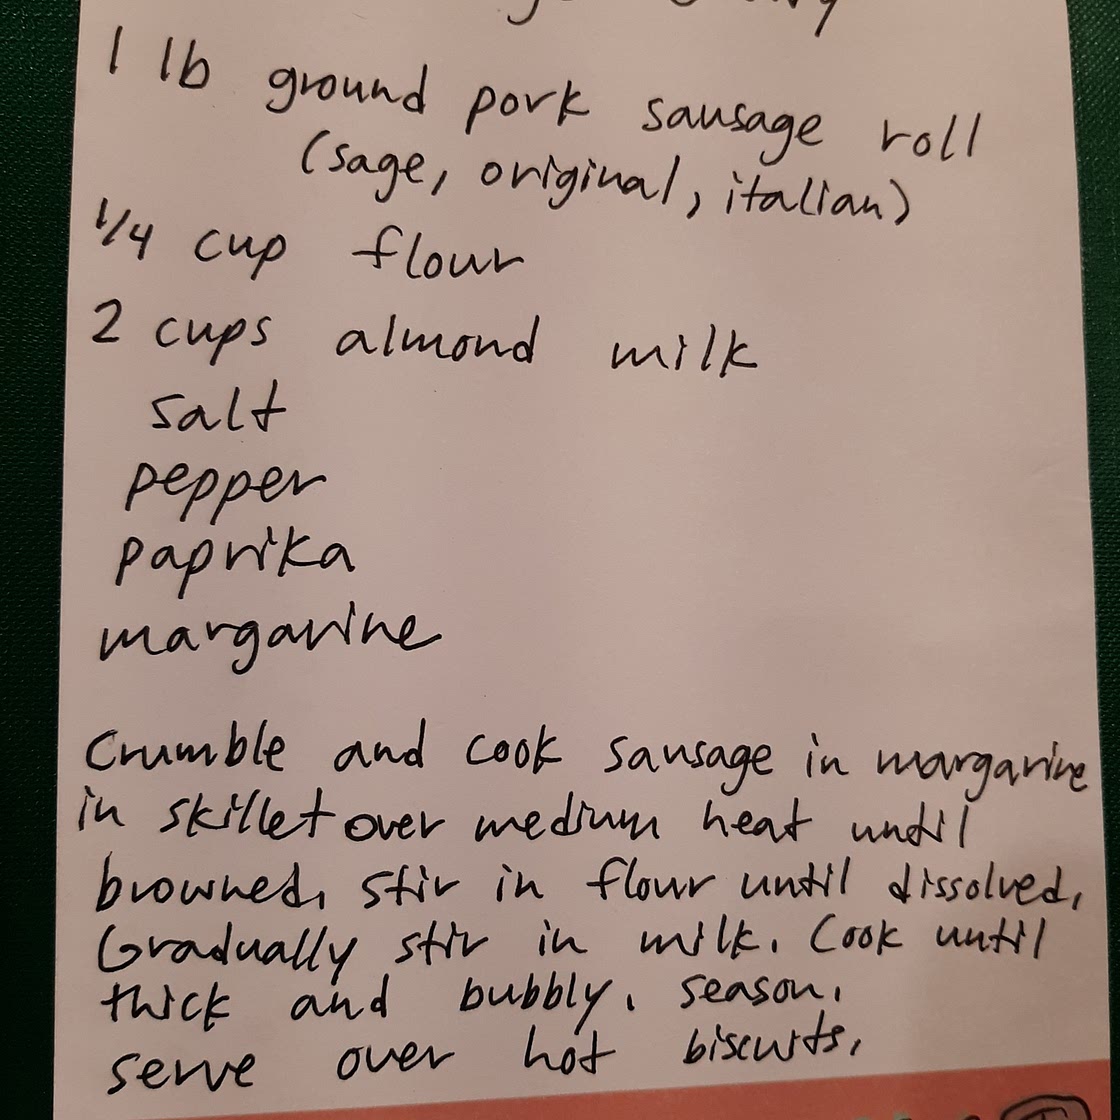 1 lb ground pork sausage roll
(sage, original, italian)
1/4 cup flour
2 cups almond milk
salt
pepper
paprika
margarine
Crumble and cook sausage in margarine
in skillet over medium heat until
browned, stir in flour until dissolved,
Gradually stir in milk. Cook until
thick and bubbly. season.
serve over hot biscuits.